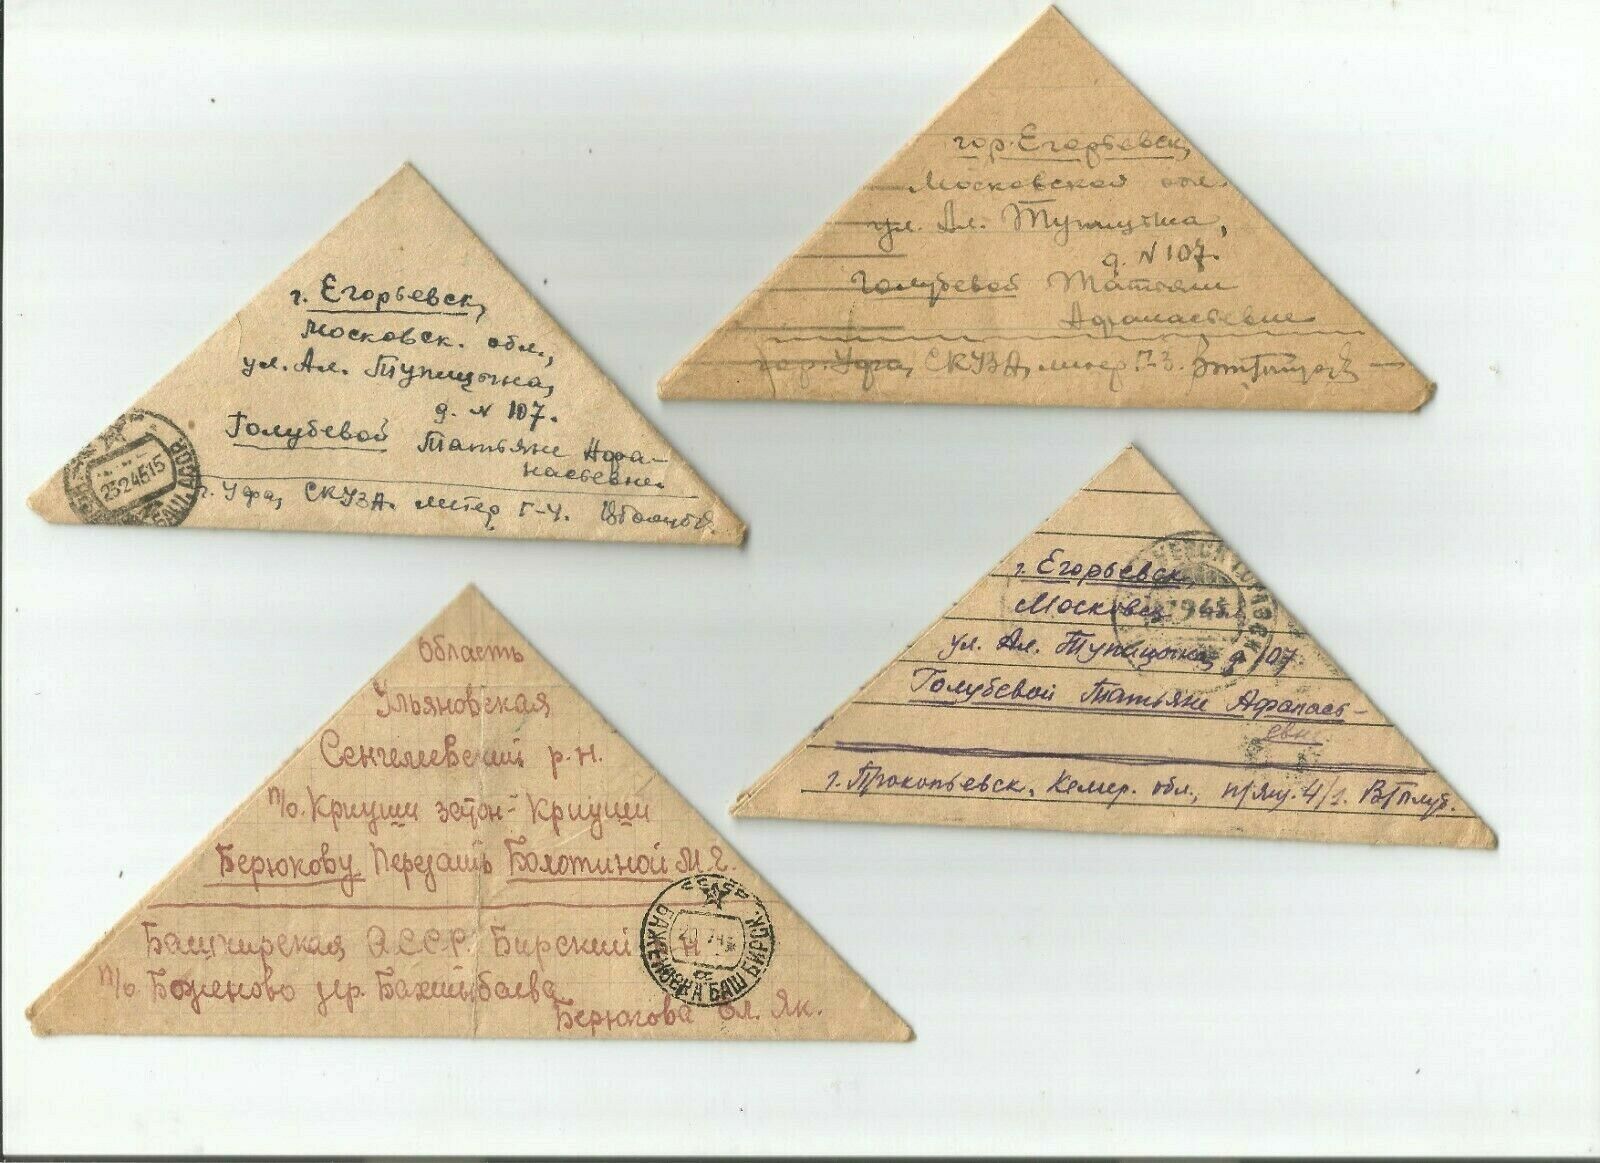 г. Егорьевск,
Московск. обл.,
ул. Ал. Тупицына,
д. N 107.
Голубевой Татьяне Афа-
насьевне.
г. Уфа, СКУЗА. литер Г-4.
23 2 46 15
гор. Егорьевск,
Московской обл.
ул. Ал. Тупицына,
д. N 107.
Голубевой Татьяне
Афанасьевне
гор. Уфа, СКУЗА, литер Г-3.
Область
Ульяновская
Сенгелеевский р.н.
п/о. Криуши затон-Криуши
Берюкову Передать Болотиной М.Г.
Башкирская АССР. Бирский р-н
п/о. Баженово дер. Бахтыбаева
Берюкова Ял. Як.
СССР
БАЖЕНОВКА БАШ БИРСК.
г. Егорьевск,
Московск. обл.
ул. Ал. Тупицына, д. 107
Голубевой Татьяне Афанась-
евне
г. Прокопьевск, Кемер. обл., п/ящ. 4/2.